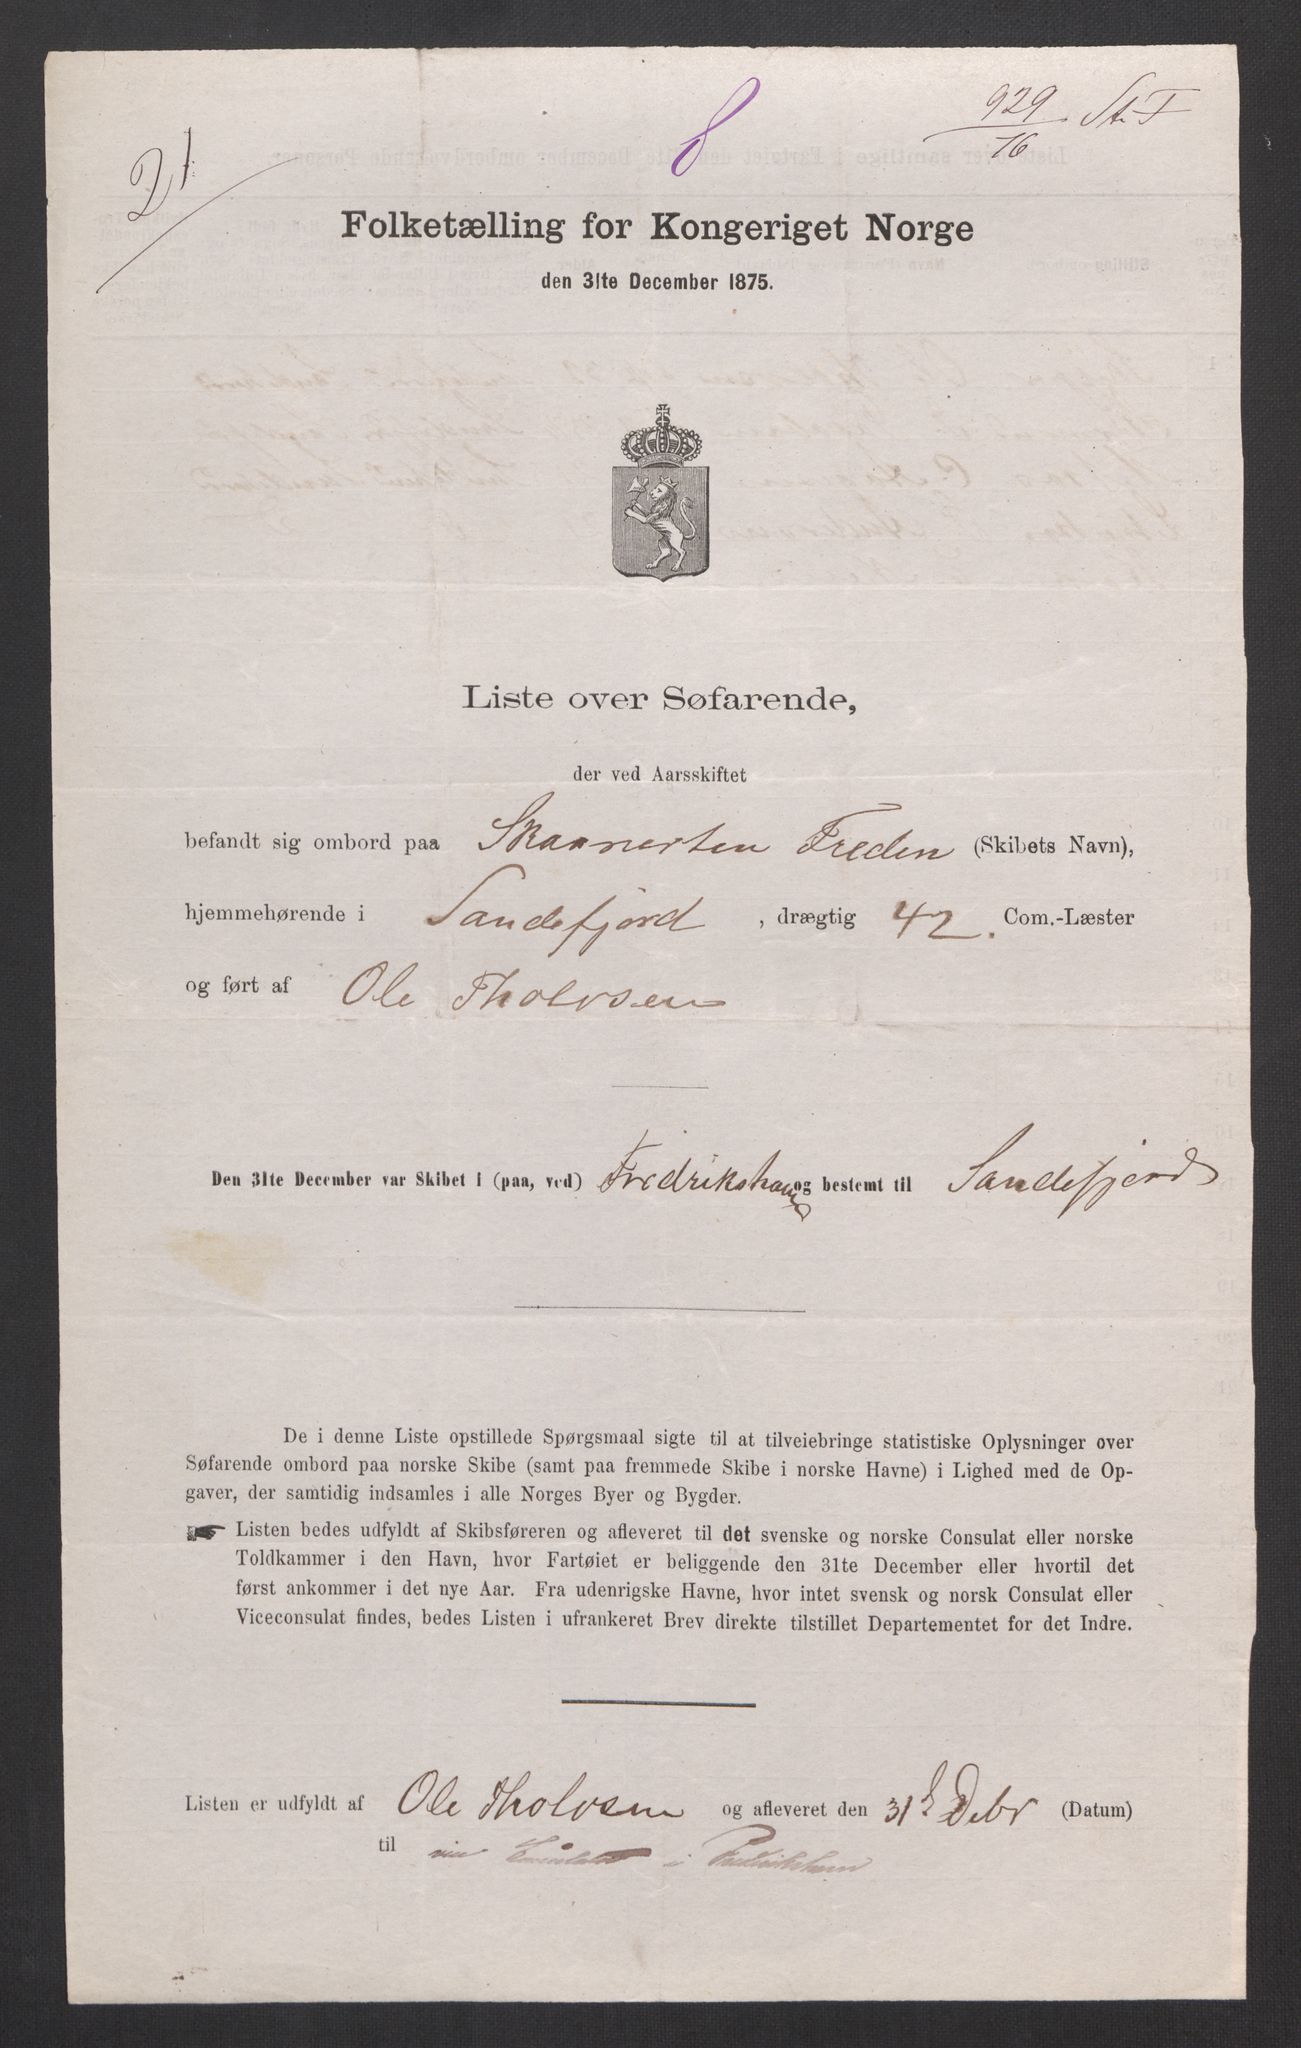 21
8
929
76 St. T
Folketælling for Kongeriget Norge
den 31te December 1875.
Liste over Søfarende,
der ved Aarsskiftet
befandt sig ombord paa Skonnerten Freden (Skibets Navn),
hjemmehørende i Sandefjord , drægtig 42. Com.-Læster
og ført af Ole Tholvsen
Den 31te December var Skibet i (paa, ved) Fredrikshavn og bestemt til Sandefjord
De i denne Liste opstillede Spørgsmaal sigte til at tilveiebringe statistiske Oplysninger over
Søfarende ombord paa norske Skibe (samt paa fremmede Skibe i norske Havne) i Lighed med de Op-
gaver, der samtidig indsamles i alle Norges Byer og Bygder.
☛ Listen bedes udfyldt af Skibsføreren og afleveret til det svenske og norske Consulat eller norske
Toldkammer i den Havn, hvor Fartøiet er beliggende den 31te December eller hvortil det
først ankommer i det nye Aar. Fra udenrigske Havne, hvor intet svensk og norsk Consulat eller
Viceconsulat findes, bedes Listen i ufrankeret Brev direkte tilstillet Departementet for det Indre.
Listen er udfyldt af Ole Tholvsen og afleveret den 31te Debr (Datum)
til i Fredrikshavn